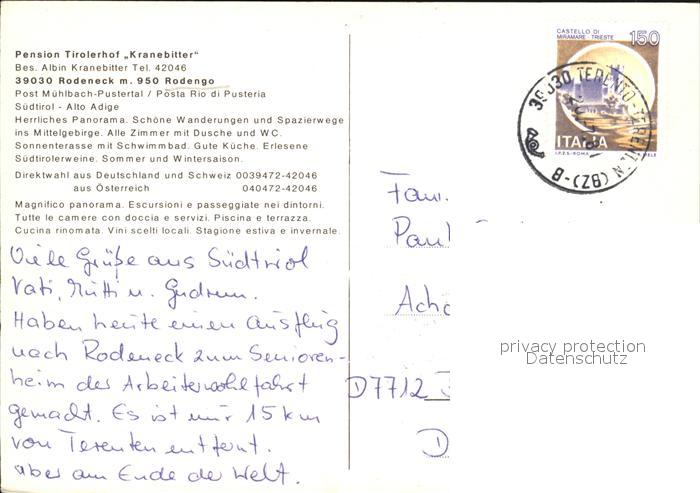 Pension Tirolerhof „Kranebitter"
Bes. Albin Kranebitter Tel. 42046
39030 Rodeneck m. 950 Rodengo
Post Mühlbach-Pustertal / Posta Rio di Pusteria
Südtirol - Alto Adige
Herrliches Panorama. Schöne Wanderungen und Spazierwege
ins Mittelgebirge. Alle Zimmer mit Dusche und WC.
Sonnenterasse mit Schwimmbad. Gute Küche. Erlesene
Südtirolerweine. Sommer und Wintersaison.
Direktwahl aus Deutschland und Schweiz 0039472-42046
aus Österreich 040472-42046
Magnifico panorama. Escursioni e passeggiate nei dintorni.
Tutte le camere con doccia e servizi. Piscina e terrazza.
Cucina rinomata. Vini scelti locali. Stagione estiva e invernale.
Viele Grüße aus Südtirol
Vati, Mutti u. Gudrun.
Haben heute einen Ausflug
nach Rodeneck zum Senioren-
heim der Arbeiterwohlfahrt
gemacht. Es ist nur 15 km
von Terenten entfernt.
aber am Ende der Welt.
CASTELLO DI
MIRAMARE - TRIESTE
150
ITALIA
I.P.Z.S. - ROMA
39030 TERENTO - TERENTEN (BZ) - B
Fam.
Paul
Ach
D7712
D
privacy protection
Datenschutz